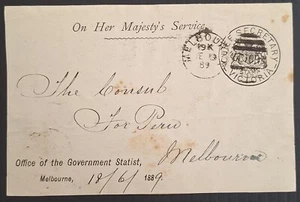 On Her Majesty's Service.
MELBOURNE
19 K
DE 19
89
CHIEF SECRETARY
VICTORIA
The Consul
For Peru
Melbourne
Office of the Government Statist,
Melbourne, 18/6/1889.